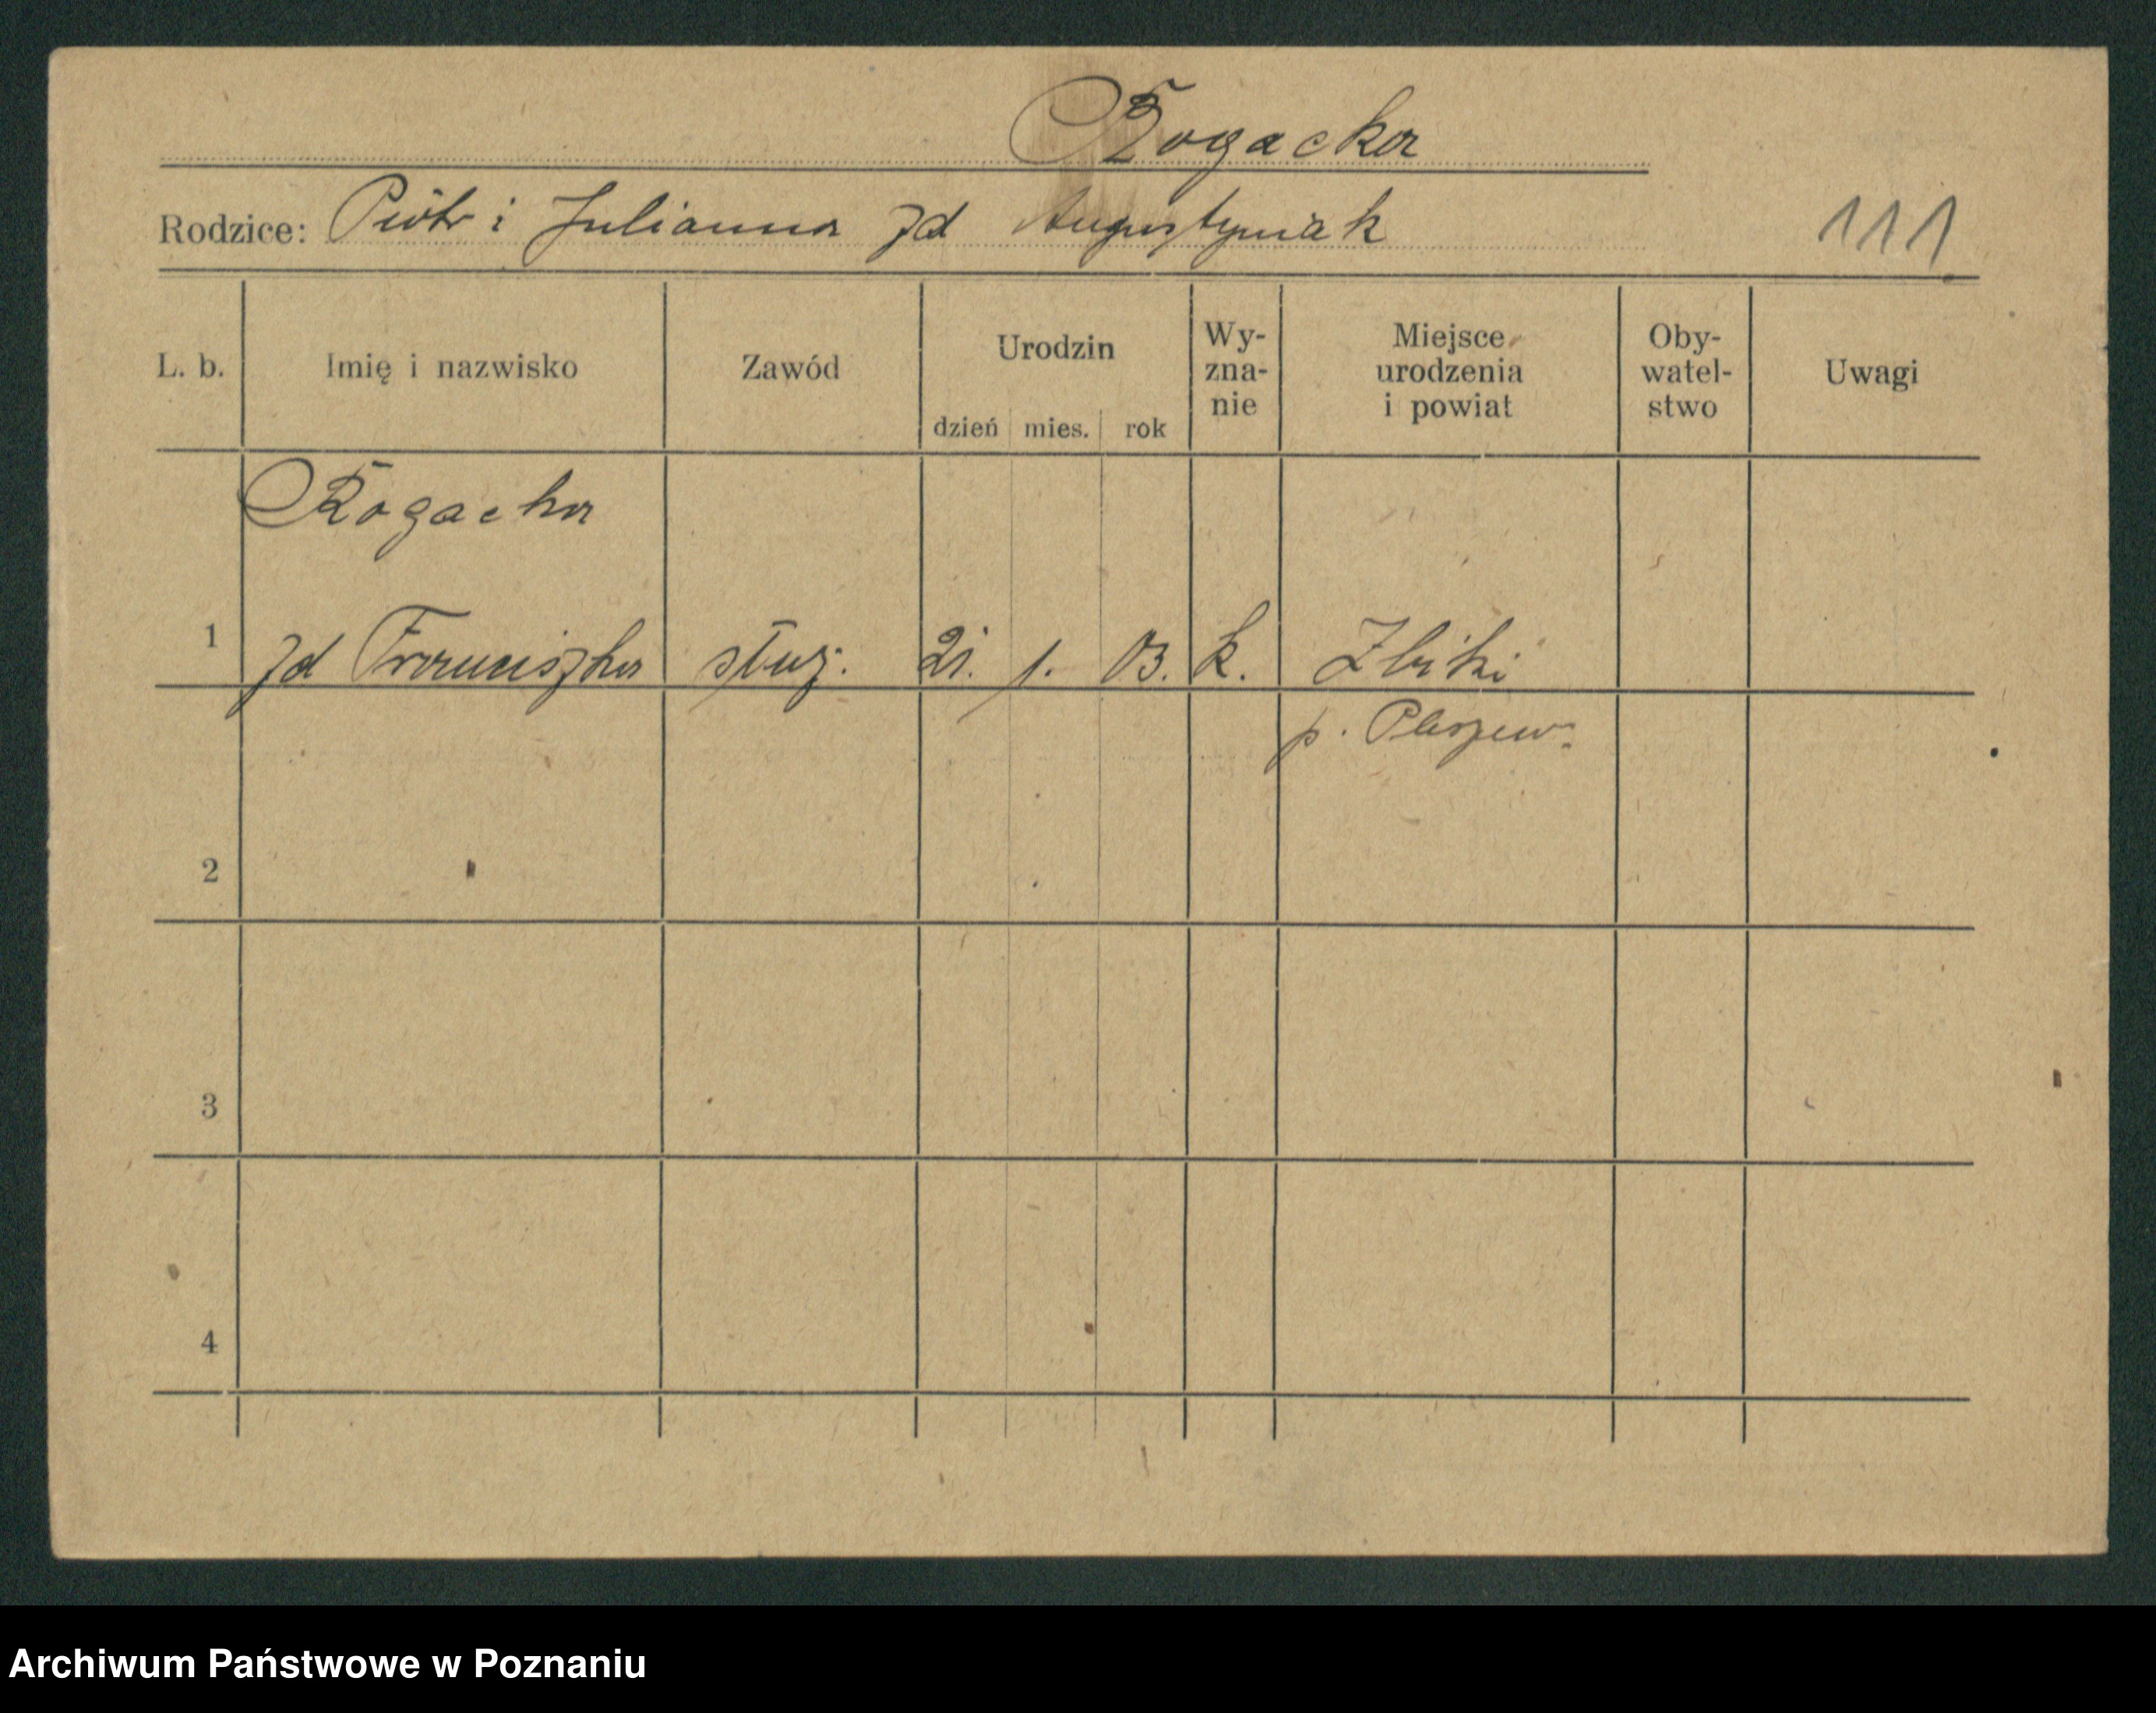 Rogacka
Rodzice: Piotr i Julianna zd Augustyniak 111
L. b. Imię i nazwisko Zawód Urodzin dzień mies. rok Wy-zna-nie Miejsce urodzenia i powiat Oby-watel-stwo Uwagi
Rogacka
1 zd Franciszka służ. 21. 1. 03. k. Zbiki
p. Pleszew.
2
3
4
Archiwum Państwowe w Poznaniu